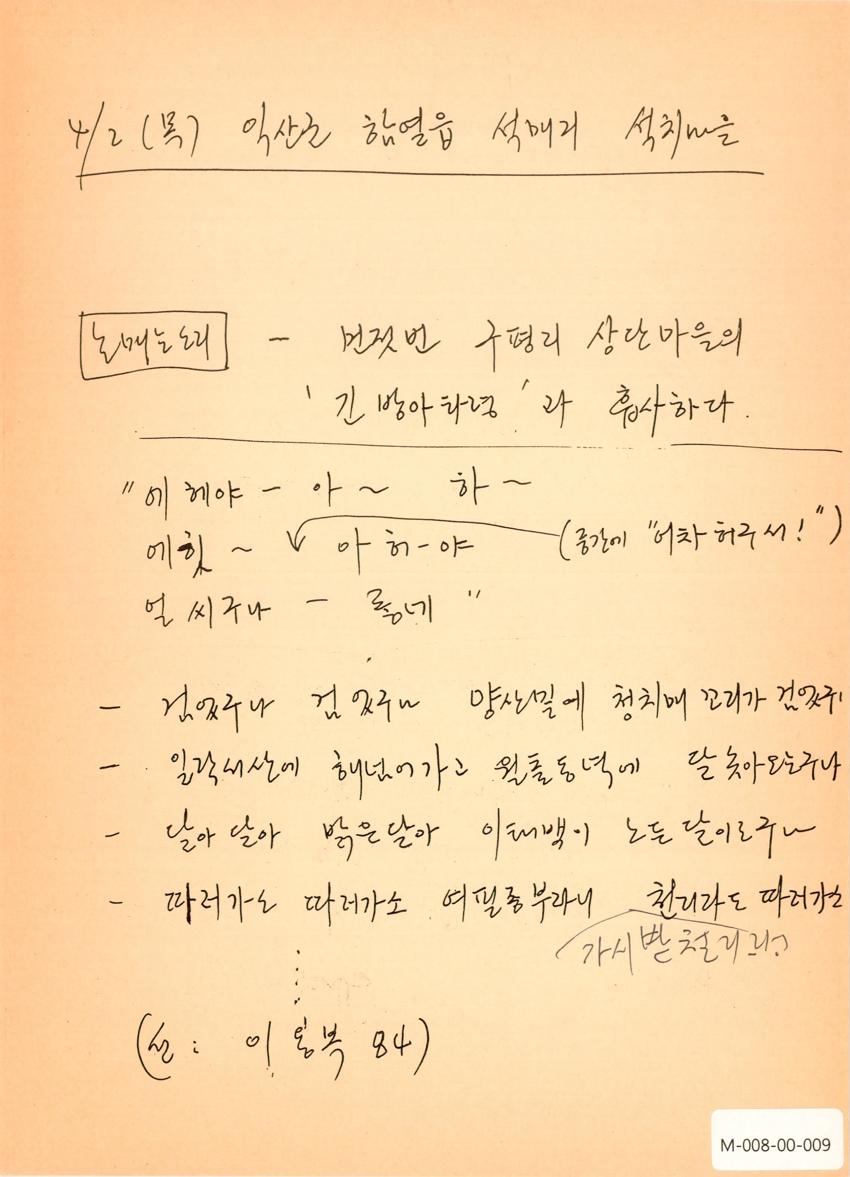 4/2 (목) 익산군 함열읍 석매리 석치마을
논매는소리 - 먼젓번 구평리 상단마을의
'긴 방아타령'과 흡사하다.
"에 헤야 - 아 ~ 하 ~
에헛 ~ 아 허-야 (중간에 "어차 허구서!")
얼 씨구나 - 좋네"
- 검었구나 검었구나 양산밑에 청치매 꼬리가 검었구
- 일락서산에 해넘어가고 월출동녘에 달 솟아오는구나
- 달아 달아 밝은달아 이태백이 노든 달이로구나
- 따러가소 따러가소 여필종부라니 천리라도 따러가소
가시밭 천리
(선: 이 복 84)
M-008-00-009